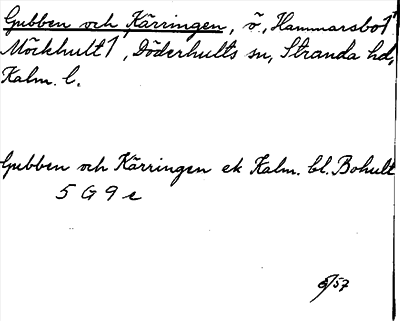 Gubben och Kärringen, ö, Hammarsbo 1
Möckhult 1, Döderhults sn, Stranda hd,
Kalm. l.
Gubben och Kärringen ek Kalm. bl. Bohult
5 G 9 e
/57